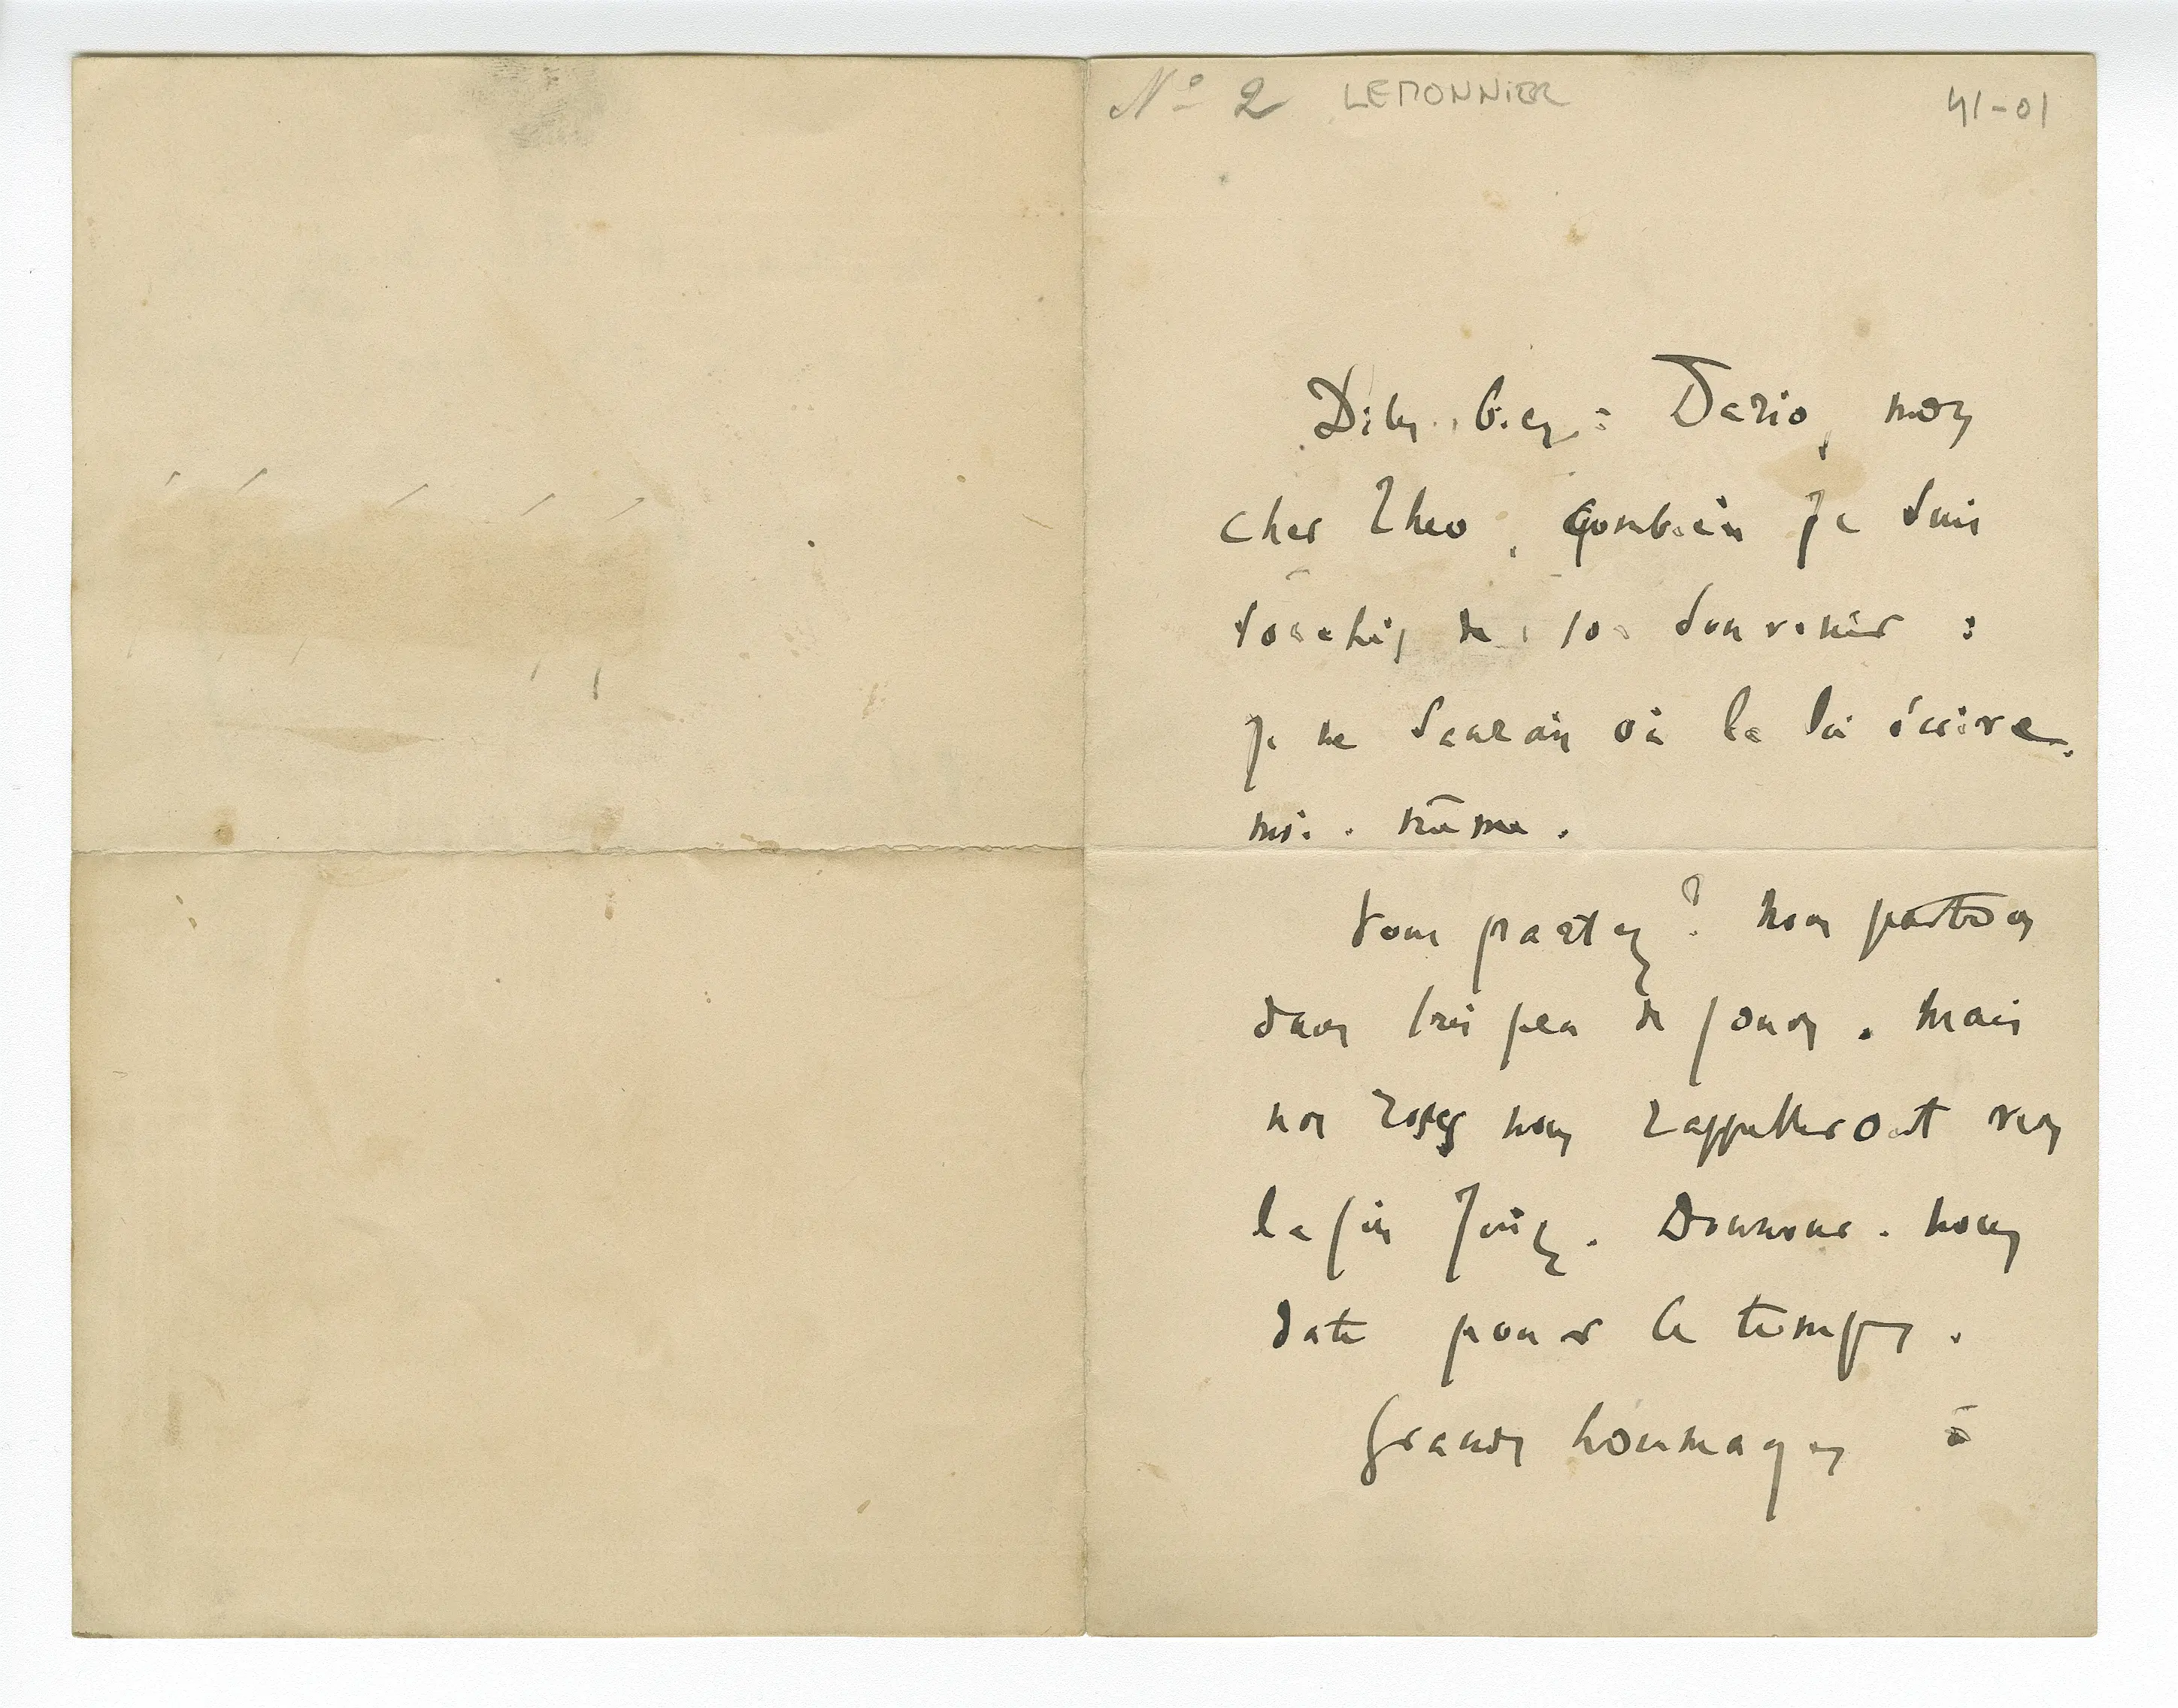 Nº 2 LEMONNIER 41-01
Dites bien à Dario, mon
cher Theo, combien je suis
touché de son souvenir :
je ne saurais où le lui écrire
moi-même.
Vous partez ? Nous partons
dans très peu de jours. Mais
nos roses nous rappelleront vers
la fin Juin. Donnons-nous
date pour ce temps.
Grands hommages à